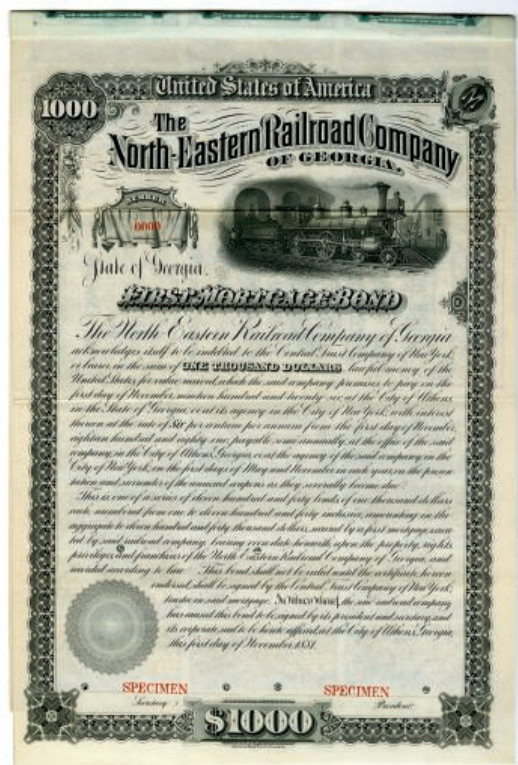 United States of America
1000
The
North-Eastern Railroad Company
OF GEORGIA.
NUMBER
0000
State of Georgia.
FIRST MORTGAGE BOND
The North Eastern Railroad Company of Georgia
acknowledges itself to be indebted to the Central Trust Company of New York,
or bearer, in the sum of ONE THOUSAND DOLLARS lawful money of the
United States, for value received, which the said company promises to pay on the
first day of November, nineteen hundred and twenty at the City of Athens,
in the State of Georgia, or at its agency in the City of New York, with interest
thereon at the rate of Six per centum per annum from the first day of November,
eighteen hundred and eighty one, payable semi annually, at the office of the said
company, in the City of Athens, Georgia, or at the agency of the said company in the
City of New York, on the first days of May and November in each year, on the presen
tation and surrender of the annexed coupons as they severally become due.
This is one of a series of eleven hundred and forty bonds of one thousand dollars
each, numbered from one to eleven hundred and forty inclusive, amounting in the
aggregate to eleven hundred and forty thousand dollars, secured by a first mortgage, execu
ted by said railroad company, bearing even date herewith, upon the property, rights,
privileges and franchises of the North Eastern Railroad Company of Georgia, and
recorded according to law. This bond shall not be valid until the certificate hereon
endorsed, shall be signed by the Central Trust Company of New York,
trustee in said mortgage. In Witness Whereof, the said railroad company
has caused this bond to be signed by its president and secretary, and
its corporate seal to be hereto affixed, at the City of Athens, Georgia,
this first day of November, 1881.
SPECIMEN SPECIMEN
Secretary. President.
$1000